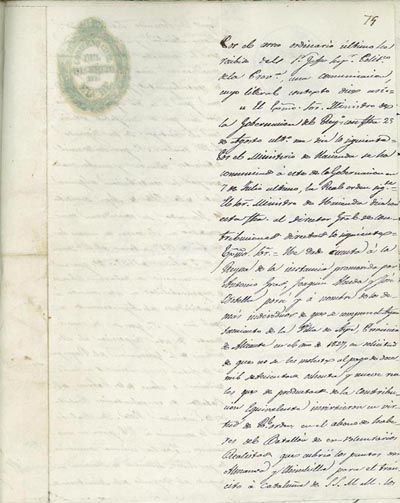 75
Por el correo ordinario último he
recibido del Sr. Gefe Sup. Polit.co
de la Prov.a una comunicación
cuyo literal contesto dice así=
El Escmo. Sor. Ministro de
la Gobernacion del Reyno con fha 25
de Agosto ult.o me dice lo siguiente=
Por el Ministerio de Hacienda se ha
comunicado á este de la Gobernacion en
7 de Julio ultimo, la Real orden sig.te
El Sor. Ministro de Hacienda dice con
esta fha. al Director Gral. de Con-
tribuciones directas lo siguiente=
Escmo. Sor.= He dado cuenta á la
Reyna de la instancia promovida por
Antonio Juan Joaquin y José
Botella para y á nombre de los de-
más individuos de que se compuso el Ayun-
tamiento de la Villa de Provincia
de Alicante en el año de 1827, en solicitud
de que no se les moleste al pago de doce
mil setecientos ochenta y nueve rea-
les que de productos de la Contribu-
cion Equivalente invirtieron en vir-
tud de orden en el abono de habe-
res del Batallon de ex-voluntarios
Realistas que cubrió los puntos de
Almansa y para el tran-
sito á Cataluña de S.S. M.M. los